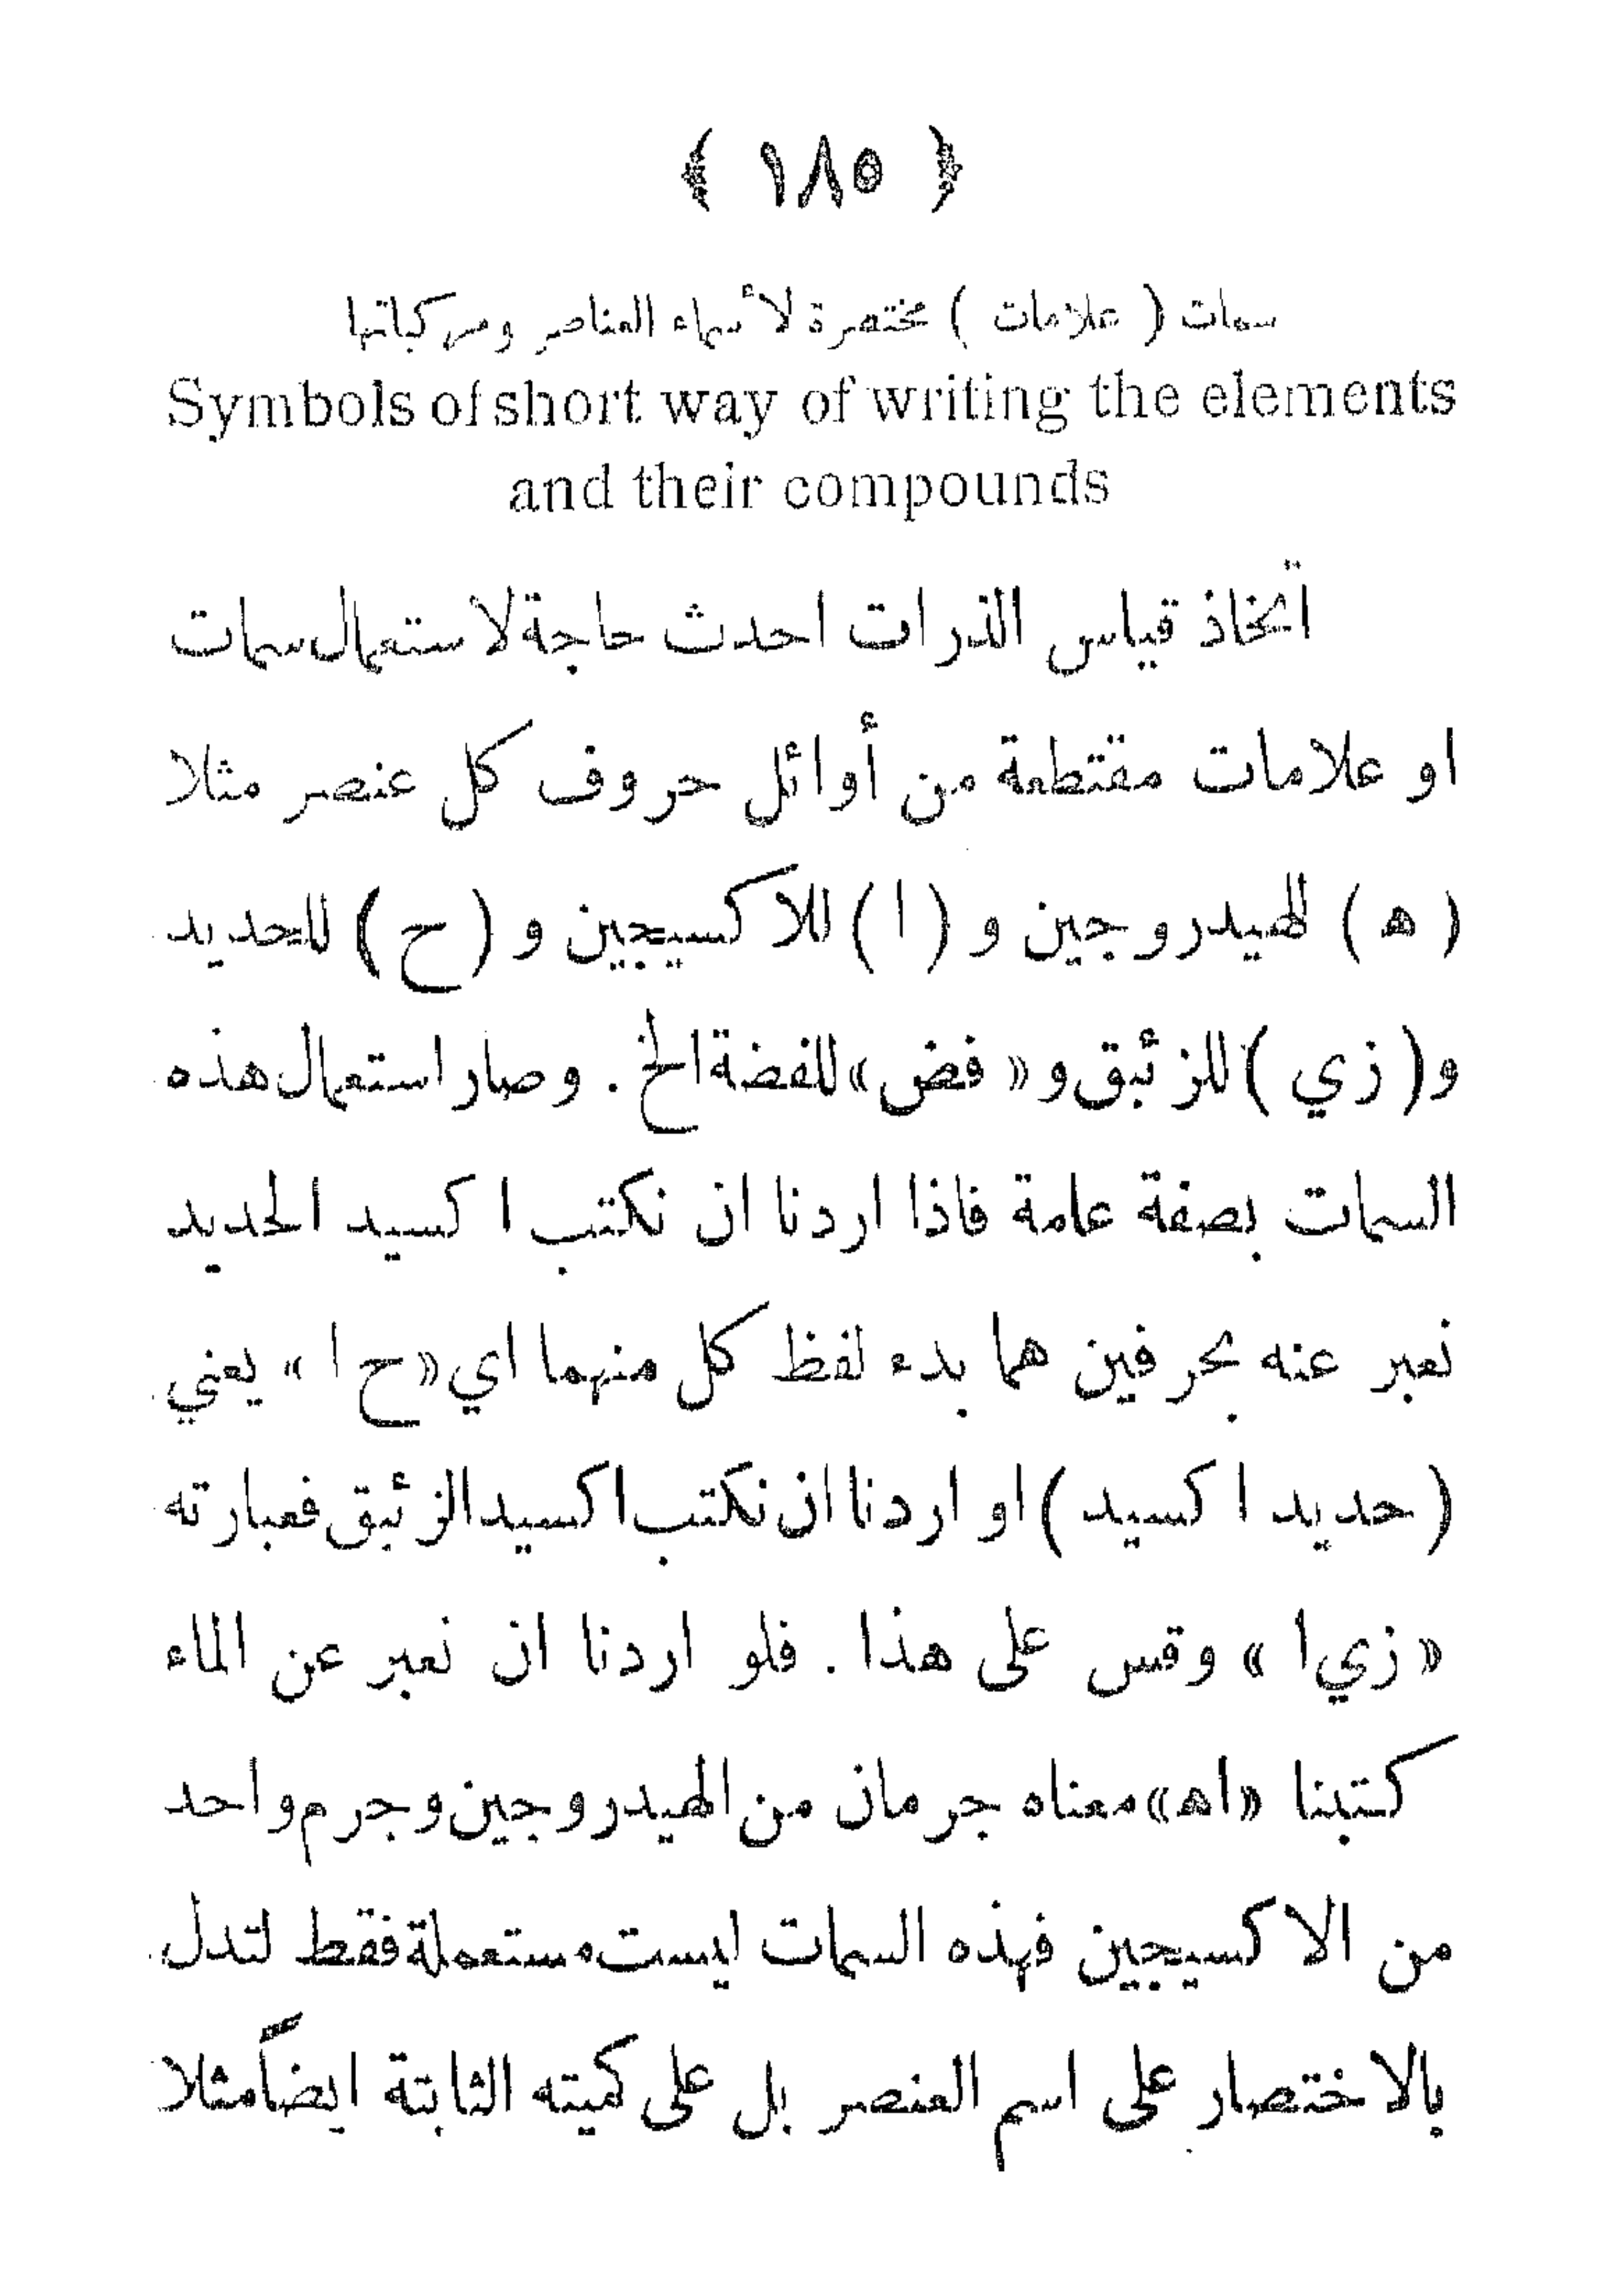 ﴿ ١٨٥ ﴾
سمات ( علامات ) مختصرة لأسماء العناصر ومركباتها
Symbols of short way of writing the elements
and their compounds
اتخاذ قياس الذرات احدث حاجة لاستعمال سمات
او علامات مقتطعة من أوائل حروف كل عنصر مثلا
( ه ) للهيدروجين و ( ا ) للاكسيجين و ( ح ) للحديد
و ( زي ) للزئبق و « فض » للفضة الخ . وصار استعمال هذه
السمات بصفة عامة فاذا اردنا ان نكتب اكسيد الحديد
نعبر عنه بحرفين هما بدء لفظ كل منهما اي « ح ا » يعني
( حديد اكسيد ) او اردنا ان نكتب اكسيد الزئبق فعبارته
« زي ا » وقس على هذا . فلو اردنا ان نعبر عن الماء
كتبنا « اه » معناه جرمان من الهيدروجين وجرم واحد
من الاكسيجين فهذه السمات ليست مستعملة فقط لتدل
بالاختصار على اسم العنصر بل على كميته الثابتة ايضاً مثلا